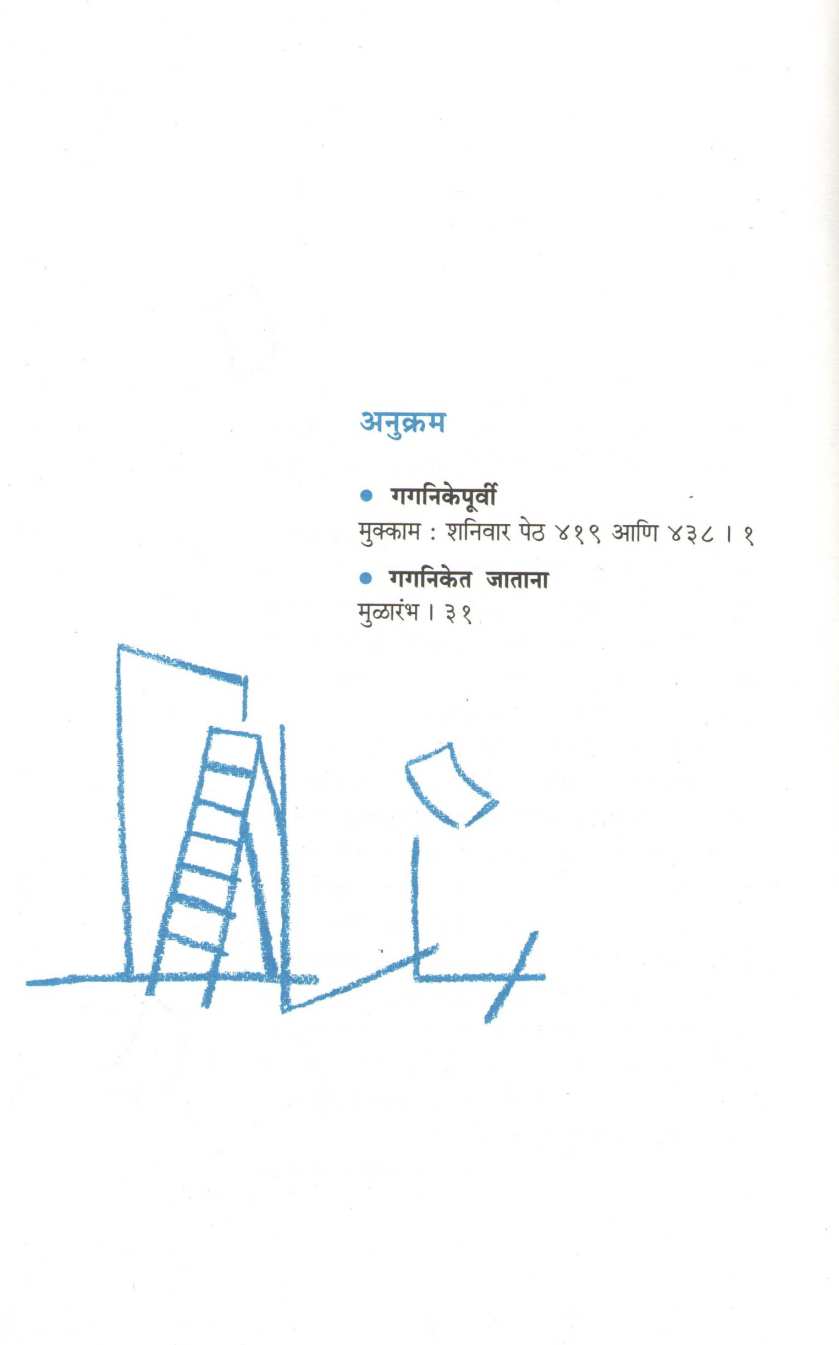 अनुक्रम
● गगनिकेपूर्वी
मुक्काम : शनिवार पेठ ४१९ आणि ४३८ । १
● गगनिकेत जाताना
मुळारंभ । ३१